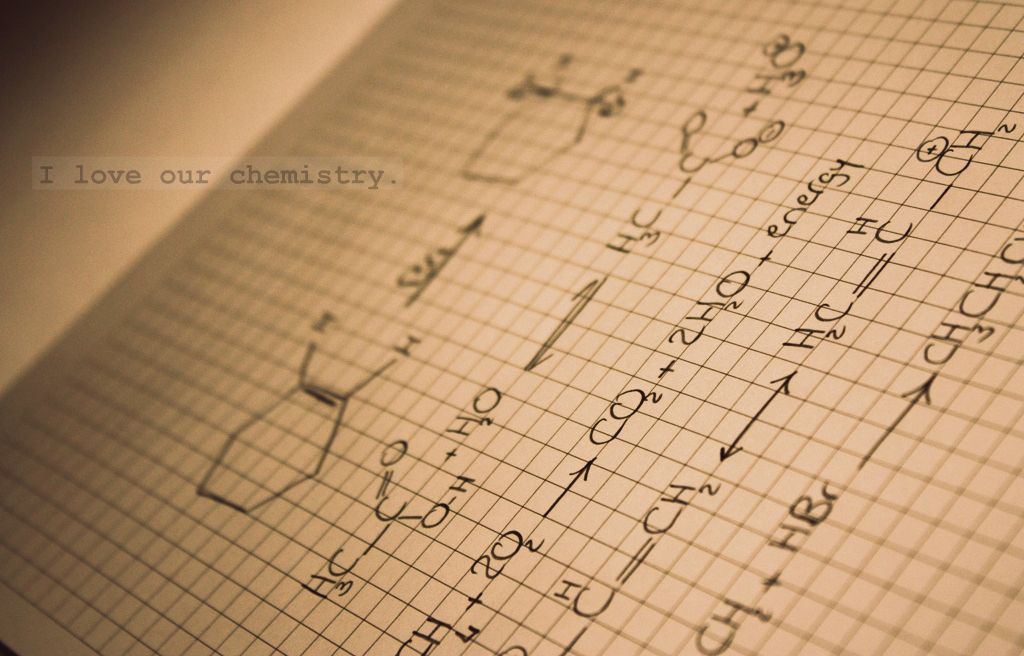 I love our chemistry.
H₃C C=O O-H + H₂O ⇌ H₃C C O O⊖ + H₃O⊕
CH₄ + 2O₂ → CO₂ + 2H₂O + energy
C H = CH₂ ↔ H₂C = C H CH₂ ⊕
CH₂ + HBr → CH₃CH₂